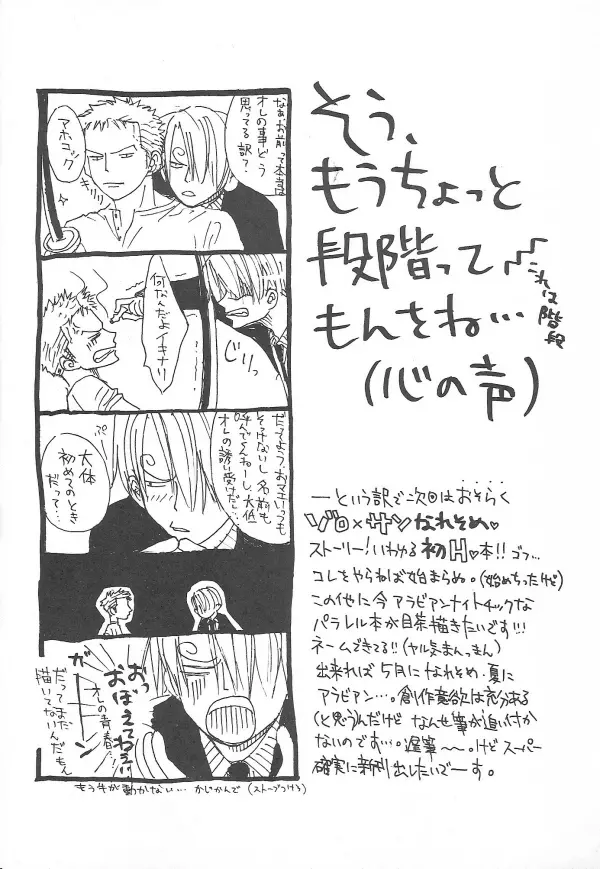 そう、
もうちょっと
段階って
もんをね…
(心の声)
これは階段
なぁお前って本当は
オレの事どう
思ってる訳?
アホコック
何なんだよイキナリ
じりっ
だってよう、おマエいつも
そっけないし名前も
呼んでくんねーし、大体
オレの誘い受けだし…
ぷ
大体
初めてのとき
だって…
おっ
おぼえてねぇ!!
オレの青春…
ガーン
だってまだ
描いてないんだもん
もう手が動かない…かじかんで(ストーブつけろ)
―という訳で次回はおそらく
ゾロ×サンなれそめ♥
ストーリー!いわゆる初H♥本!!ゴフ…
コレをやらねば始まらぬ。(始めちったけど)
この他に今アラビアンナイトチックな
パラレル本が目茶描きたいです!!!
ネームできてる!!(ヤル気まんまん)
出来れば5月になれそめ・夏に
アラビアン…。創作意欲は充分ある
(と思う)んだけどなんせ筆が追い付か
ないのです…。遅筆〜〜。けどスーパー
確実に新刊出したいでーす。